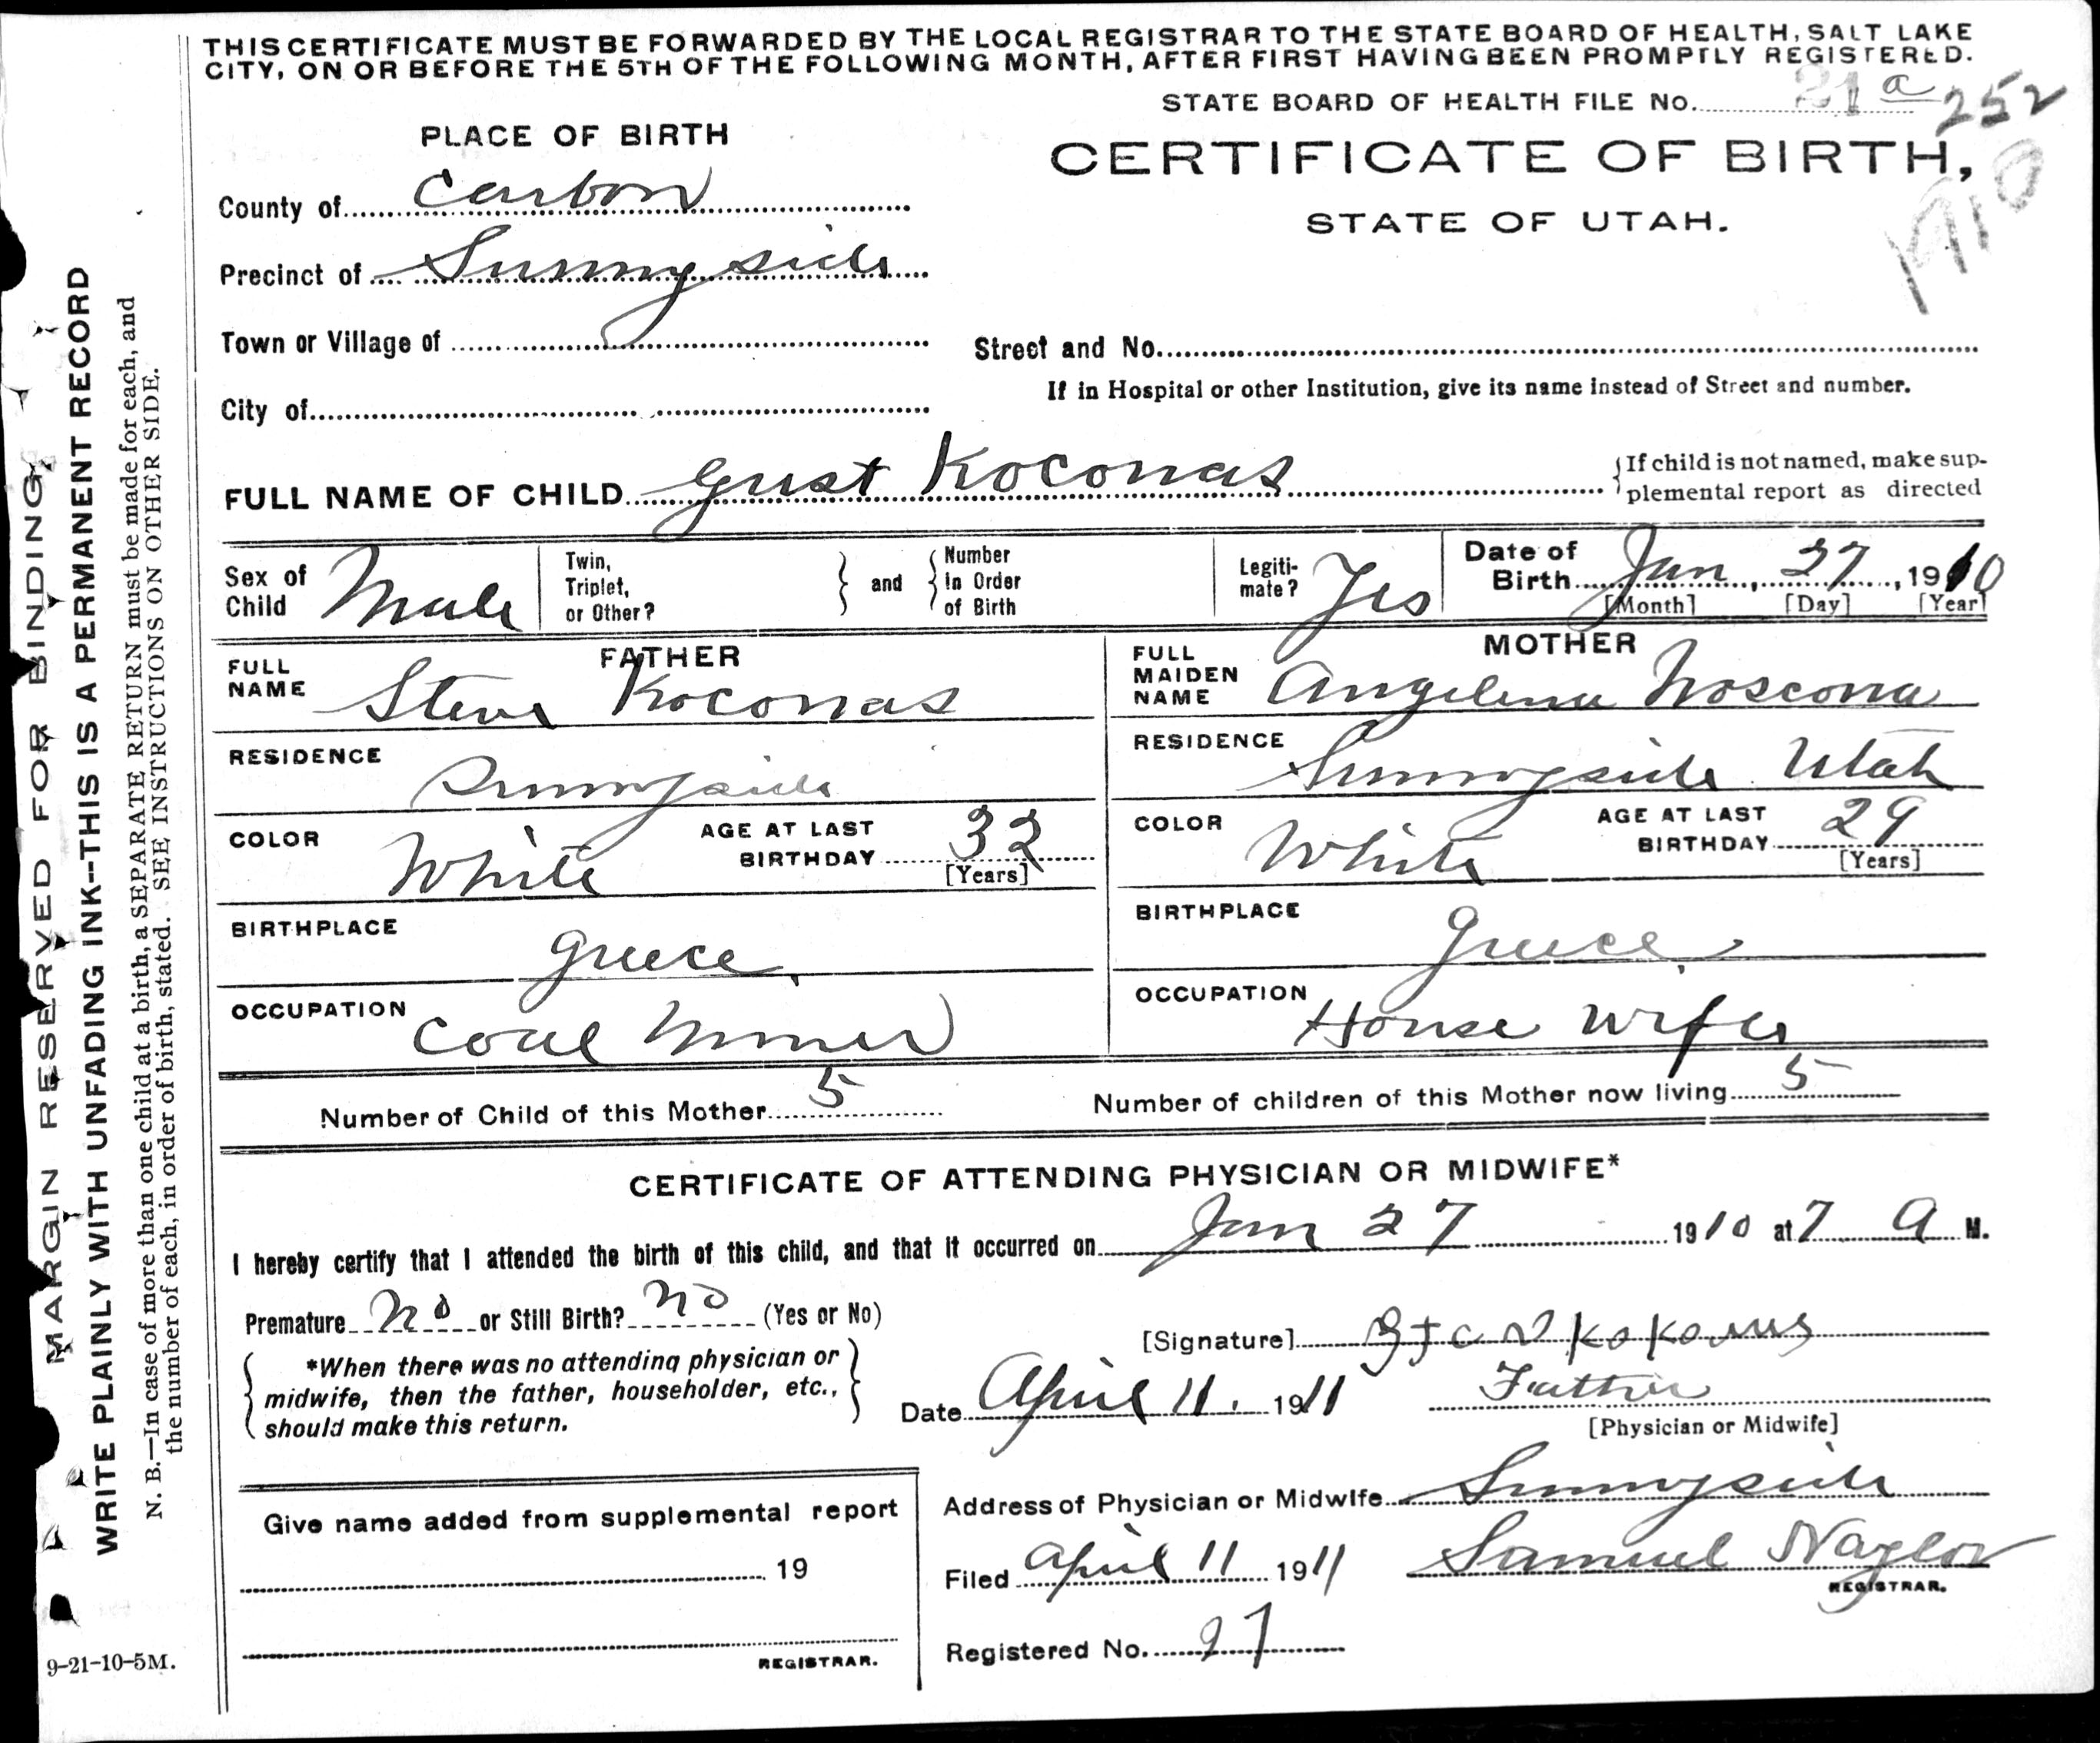 THIS CERTIFICATE MUST BE FORWARDED BY THE LOCAL REGISTRAR TO THE STATE BOARD OF HEALTH, SALT LAKE
CITY, ON OR BEFORE THE 5TH OF THE FOLLOWING MONTH, AFTER FIRST HAVING BEEN PROMPTLY REGISTERED.
STATE BOARD OF HEALTH FILE No. 21 a 252
1910
PLACE OF BIRTH
CERTIFICATE OF BIRTH,
STATE OF UTAH.
County of Carbon
Precinct of Sunnyside
Town or Village of
Street and No.
If in Hospital or other Institution, give its name instead of Street and number.
City of
FULL NAME OF CHILD Gust Koconas
{If child is not named, make sup-
plemental report as directed
Sex of Child Male
Twin, Triplet, or Other?
} and {
Number in Order of Birth
Legiti-mate? Yes
Date of Birth Jan 27, 1910
[Month] [Day] [Year]
FATHER
FULL NAME Steve Koconas
RESIDENCE Sunnyside
COLOR White
AGE AT LAST BIRTHDAY 32
[Years]
BIRTHPLACE Greece
OCCUPATION Coal Miner
MOTHER
FULL MAIDEN NAME Angelena
RESIDENCE Sunnyside Utah
COLOR White
AGE AT LAST BIRTHDAY 29
[Years]
BIRTHPLACE Greece
OCCUPATION House Wife
Number of Child of this Mother 5
Number of children of this Mother now living 5
CERTIFICATE OF ATTENDING PHYSICIAN OR MIDWIFE*
I hereby certify that I attended the birth of this child, and that it occurred on Jan 27 1910 at 7 A M.
Premature No or Still Birth? No (Yes or No)
{ *When there was no attending physician or }
midwife, then the father, householder, etc.,
should make this return.
[Signature]
Father
[Physician or Midwife]
Date April 11, 1911
Address of Physician or Midwife Sunnyside
Filed April 11 1911 Samuel Naylor
REGISTRAR.
Registered No. 27
Give name added from supplemental report
19
REGISTRAR.
MARGIN RESERVED FOR BINDING
WRITE PLAINLY WITH UNFADING INK--THIS IS A PERMANENT RECORD
N. B.—In case of more than one child at a birth, a SEPARATE RETURN must be made for each, and
the number of each, in order of birth, stated. SEE INSTRUCTIONS ON OTHER SIDE.
9-21-10-5M.